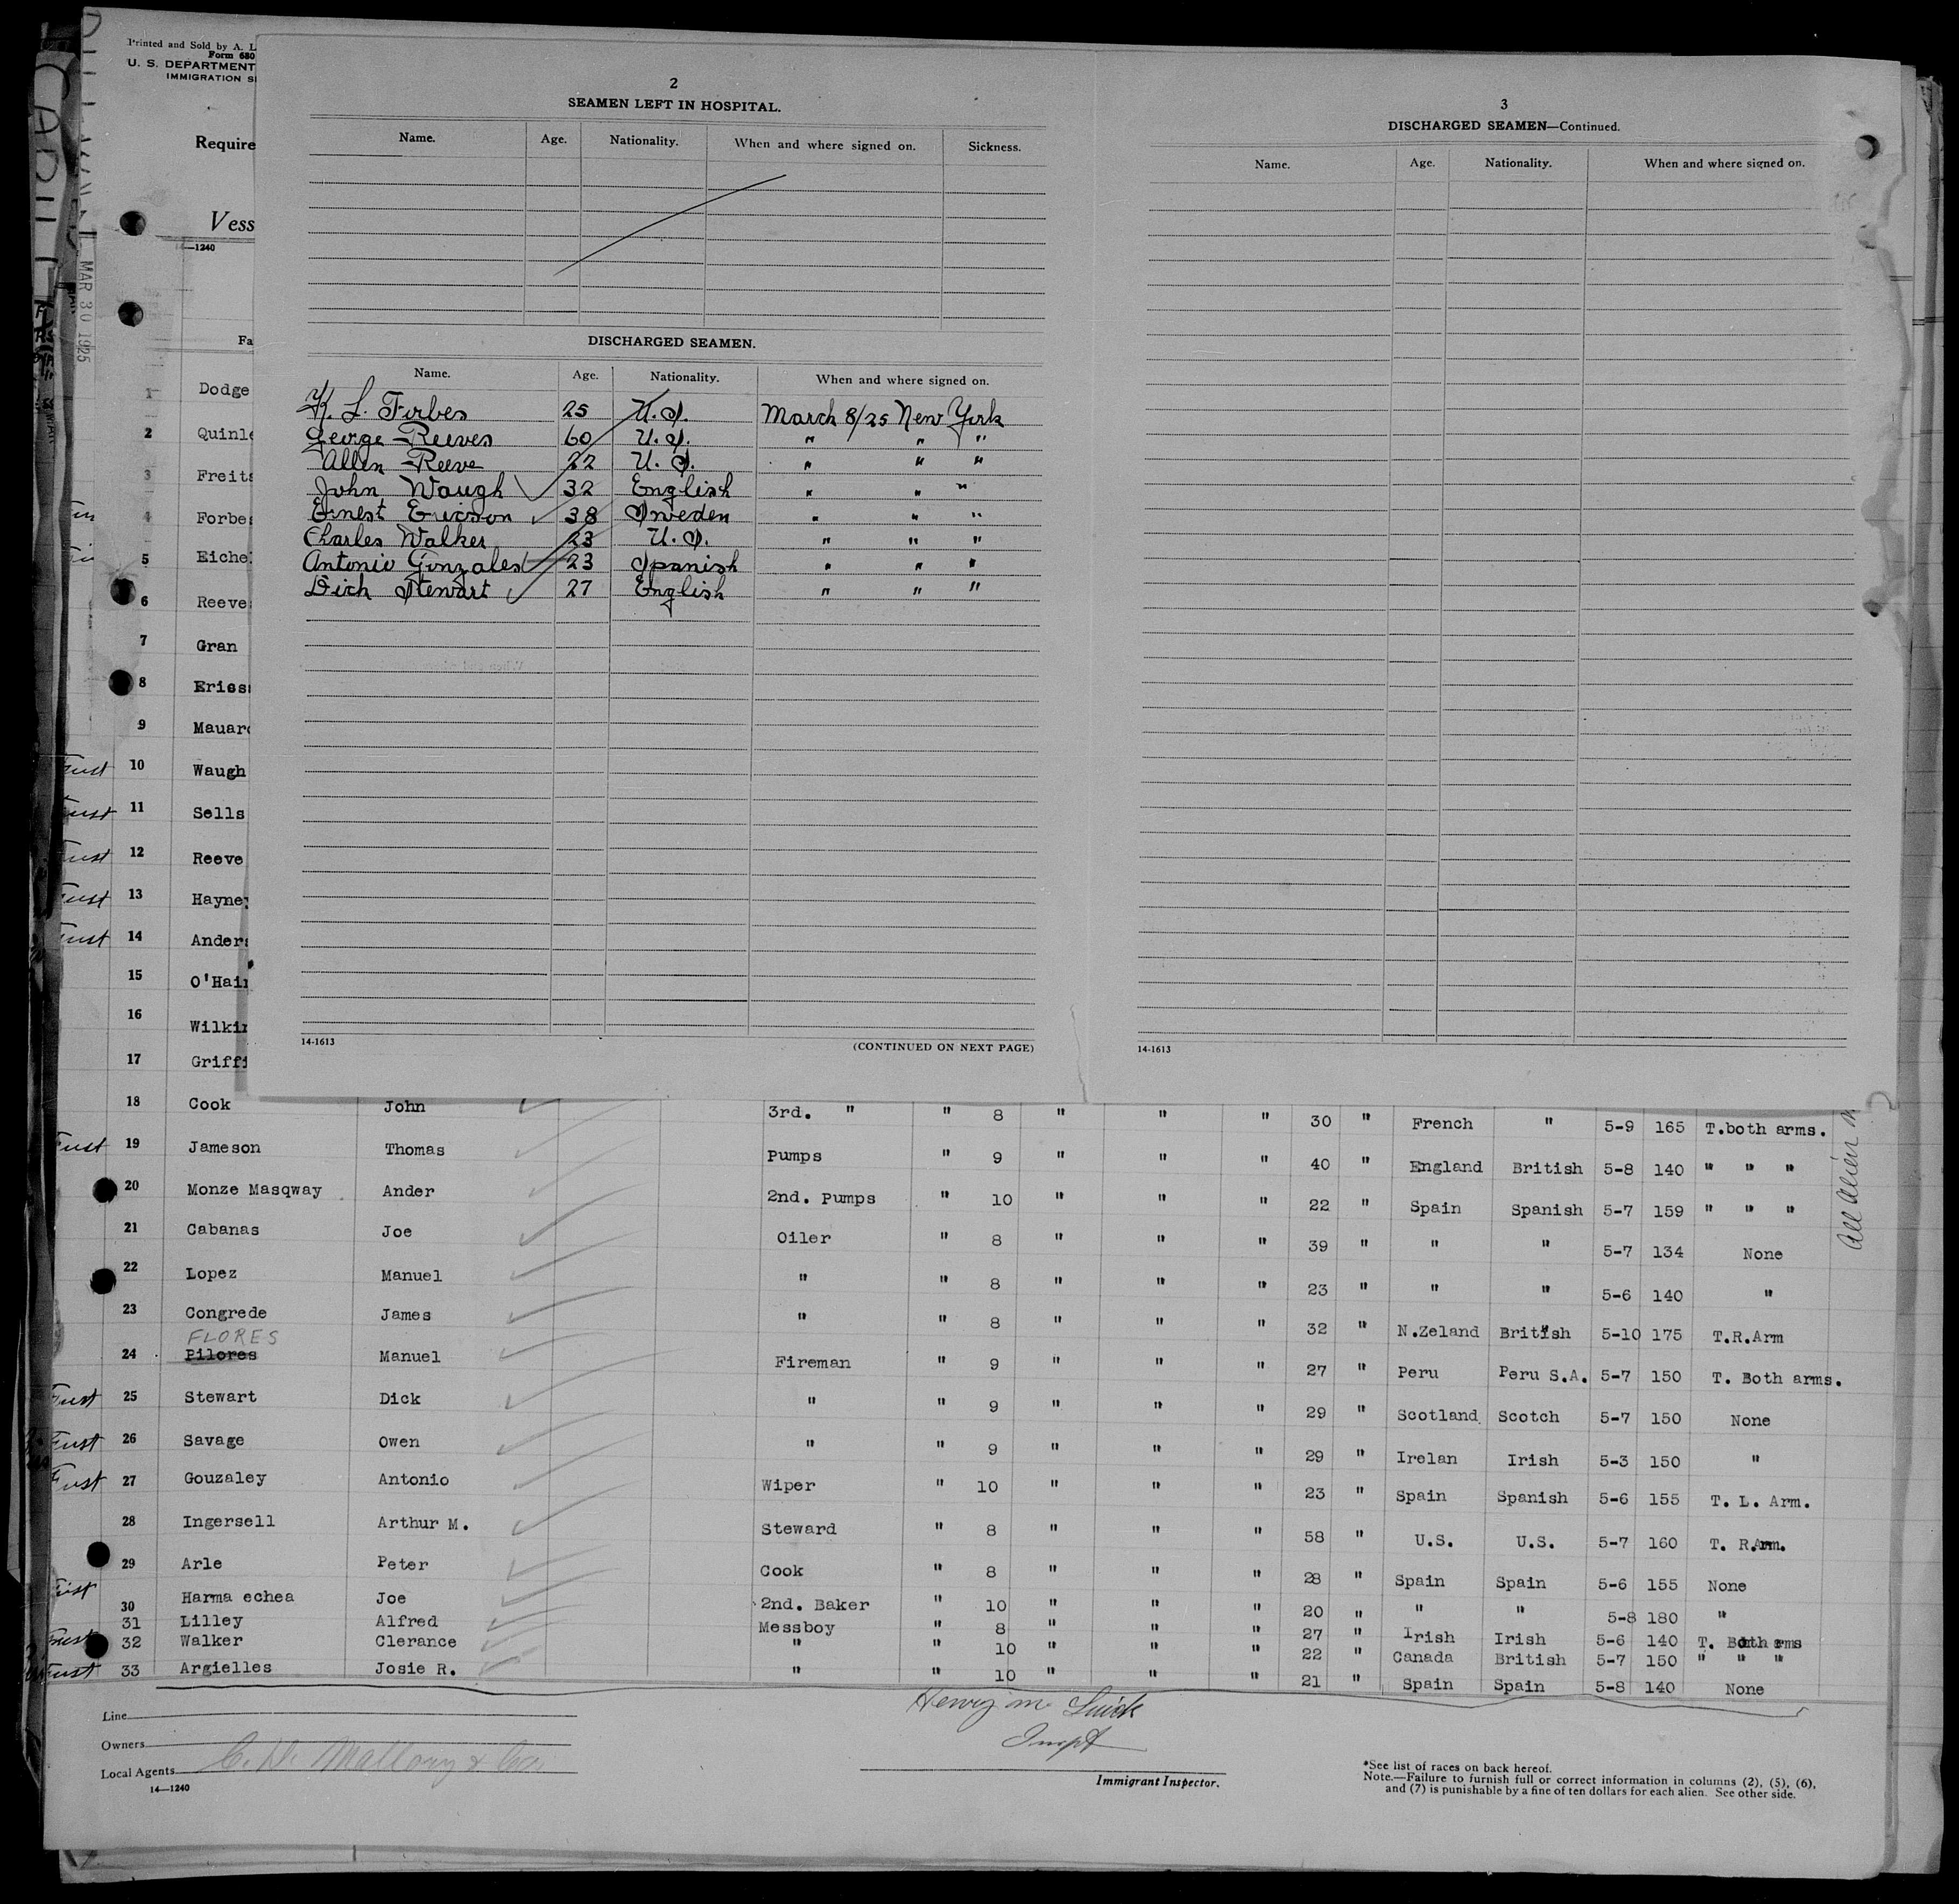 Printed and Sold by A. L
Form 680
U. S. DEPARTMENT
IMMIGRATION S
Require
Vess
14—1240
MAR 30 1925
Fa
1 Dodge
2 Quinle
3 Freits
4 Forbes
5 Eichel
6 Reeve
7 Gran
8 Eriess
9 Mauard
10 Waugh
11 Sells
12 Reeve
13 Hayne
14 Anders
15 O'Hair
16 Wilkin
17 Griffi
2
SEAMEN LEFT IN HOSPITAL.
Name. Age. Nationality. When and where signed on. Sickness.
DISCHARGED SEAMEN.
Name. Age. Nationality. When and where signed on.
K. L. Forbes 25 U.S. March 8/25 New York
George Reeves 60 U.S. " " "
Allen Reeve 22 U.S. " " "
John Waugh 32 English " " "
Ernest Ericson 38 Sweden " " "
Charles Walker 23 U.S. " " "
Antonio Gonzales 23 Spanish " " "
Dick Stewart 27 English " " "
14-1613 (CONTINUED ON NEXT PAGE)
3
DISCHARGED SEAMEN—Continued.
Name. Age. Nationality. When and where signed on.
14-1613
18 Cook John 3rd. " " 8 " " " 30 " French " 5-9 165 T.both arms.
19 Jameson Thomas Pumps " 9 " " " 40 " England British 5-8 140 " " "
20 Monze Masqway Ander 2nd. Pumps " 10 " " " 22 " Spain Spanish 5-7 159 " " "
21 Cabanas Joe Oiler " 8 " " " 39 " " " 5-7 134 None
22 Lopez Manuel " " 8 " " " 23 " " " 5-6 140 "
23 Congrede James " " 8 " " " 32 " N.Zeland British 5-10 175 T.R.Arm
FLORES
24 Pilores Manuel Fireman " 9 " " " 27 " Peru Peru S.A. 5-7 150 T. Both arms.
25 Stewart Dick " " 9 " " " 29 " Scotland Scotch 5-7 150 None
26 Savage Owen " " 9 " " " 29 " Irelan Irish 5-3 150 "
27 Gouzaley Antonio Wiper " 10 " " " 23 " Spain Spanish 5-6 155 T. L. Arm.
28 Ingersell Arthur M. Steward " 8 " " " 58 " U.S. U.S. 5-7 160 T. R.Arm.
29 Arle Peter Cook " 8 " " " 28 " Spain Spain 5-6 155 None
30 Harma echea Joe 2nd. Baker " 10 " " " 20 " " " 5-8 180 "
31 Lilley Alfred Messboy " 8 " " " 27 " Irish Irish 5-6 140 T. Both arms
32 Walker Clerance " " 10 " " " 22 " Canada British 5-7 150 " " "
33 Argielles Josie R. " " 10 " " " 21 " Spain Spain 5-8 140 None
All Alien
Line
Owners
Local Agents C. D. Mallory & Co.
14—1240
Henry M
Inspt
Immigrant Inspector.
*See list of races on back hereof.
Note.—Failure to furnish full or correct information in columns (2), (5), (6),
and (7) is punishable by a fine of ten dollars for each alien. See other side.